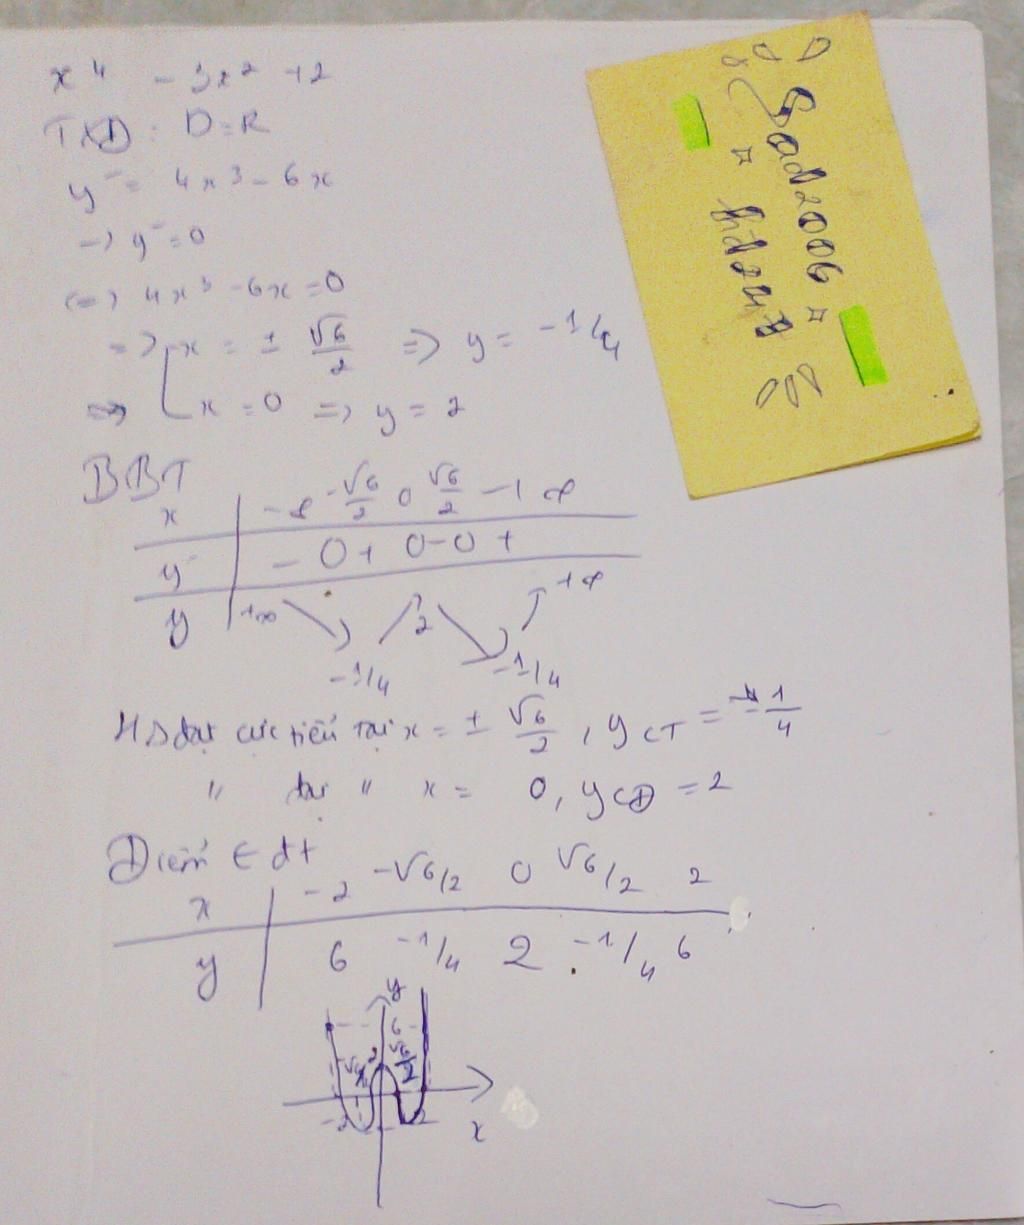 x⁴ - 3x² + 2
TXĐ: D = R
y' = 4x³ - 6x
→ y' = 0
<=> 4x³ - 6x = 0
=> x = ± √6/2 => y = -1/4
=> x = 0 => y = 2
BBT
x | -∞ -√6/2 0 √6/2 +∞
y' | - 0 + 0 - 0 +
y | +∞ -1/4 2 -1/4 +∞
HS đạt cực tiểu tại x = ± √6/2, yCT = -1/4
" đại " x = 0, yCĐ = 2
Điểm ∈ đt
x | -2 -√6/2 0 √6/2 2
y | 6 -1/4 2 -1/4 6
y
6
2 √6/2
-2 2
x
Sad2006